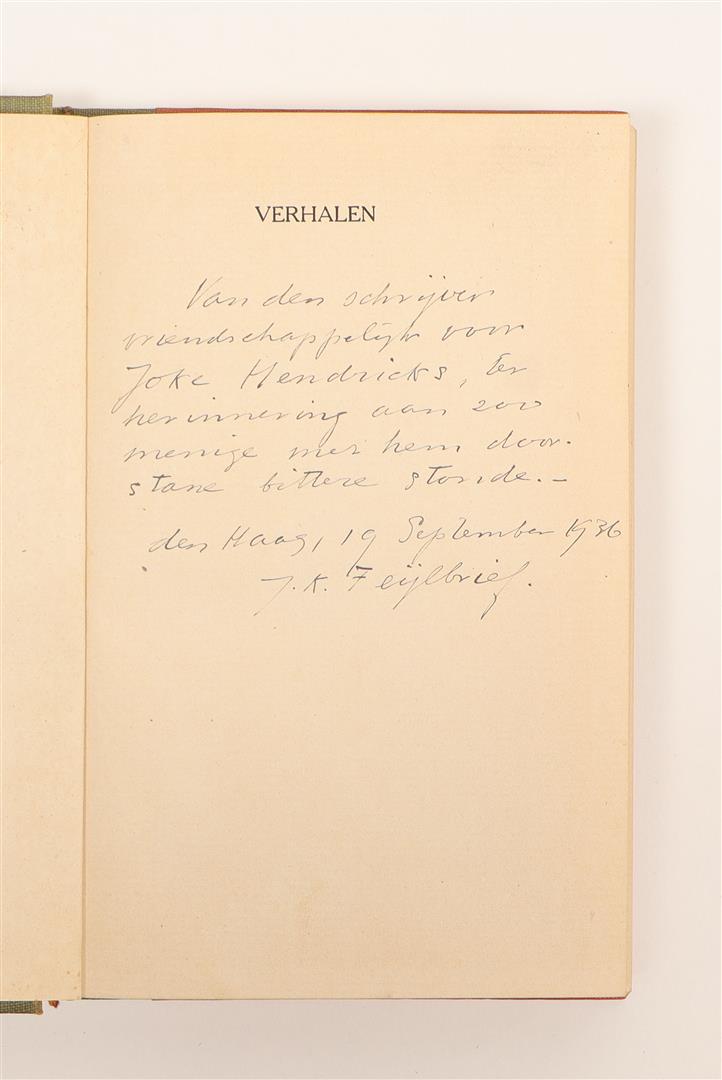 VERHALEN
Van den schrijver
vriendschappelijk voor
Joke Hendricks, ter
herinnering aan zoo
menige met hem door-
stane bittere stonde. –
den Haag, 19 September 1936
J. K. Feijlbrief.